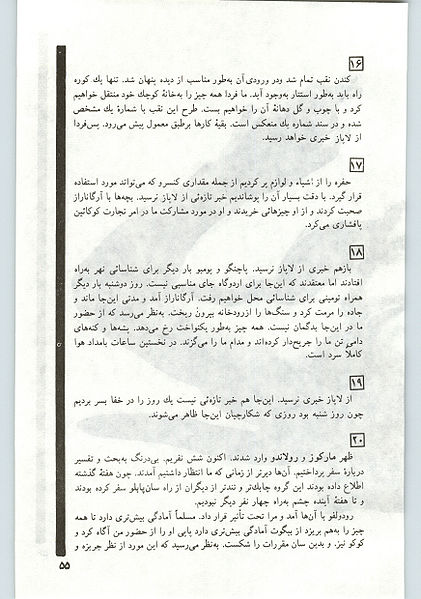 ۱۶
کندن نقب تمام شد ودر ورودی‌آن به‌طور مناسب از دیده پنهان شد. تنها یك کوره
راه باید به‌طور استتار به‌وجود آید. ما فردا همه چیز را به‌خانهٔ کوچك خود منتقل خواهیم
کرد و با چوب و گل دهانهٔ آن را خواهیم بست. طرح این نقب با شمارهٔ یك مشخص
شده و در سند شماره یك منعکس است. بقیهٔ کارها برطبق معمول پیش می‌رود. پس‌فردا
از لاپاز خبری خواهد رسید.
۱۷
حفره را از اشیاء و لوازم پر کردیم از جمله مقداری کنسرو که می‌تواند مورد استفاده
قرار گیرد. با دقت بسیار آن را پوشاندیم خبر تازه‌ئی از لاپاز نرسید. بچه‌ها با آرگاناراز
صحبت کردند و از او چیزهائی خریدند و او در مورد مشارکت ما در امر تجارت کوکائین
پافشاری می‌کرد.
۱۸
بازهم خبری از لاپاز نرسید. پاچنگو و پومبو بار دیگر برای شناسائی نهر به‌راه
افتادند اما معتقدند که این‌جا برای اردوگاه جای مناسبی نیست. روز دوشنبه بار دیگر
همراه تومینی برای شناسائی محل خواهیم رفت. آرگاناراز آمد و مدتی این‌جا ماند و
جاده را مرمت کرد و سنگ‌ها را ازرودخانه بیرون ریخت. به‌نظر می‌رسد که از حضور
ما در این‌جا بدگمان نیست. همه چیز به‌طور یکنواخت رخ می‌دهد. پشه‌ها و کنه‌های
دامی تن ما را جریح‌دار کرده‌اند و مدام ما را می‌گزند. در نخستین ساعات بامداد هوا
کاملاً سرد است.
۱۹
از لاپاز خبری نرسید. این‌جا هم خبر تازه‌ئی نیست یك روز را در خفا بسر بردیم
چون روز شنبه بود روزی که شکارچیان این‌جا ظاهر می‌شوند.
۲۰
ظهر مارکوز و رولاندو وارد شدند. اکنون شش نفریم. بی‌درنگ به‌بحث و تفسیر
دربارهٔ سفر پرداختیم. آن‌ها دیرتر از زمانی که ما انتظار داشتیم آمدند. چون هفتهٔ گذشته
اطلاع داده بودند این گروه چابك‌تر و تندتر از دیگران از راه سان‌پابلو سفر کرده بودند
و تا هفتهٔ آینده چشم به‌راه چهار نفر دیگر نبودیم.
رودولفو با آن‌ها آمد و مرا تحت تأثیر قرار داد. مسلماً آمادگی بیش‌تری دارد تا همه
چیز را به‌هم بریزد از بیگوت آمادگی بیش‌تری دارد پاپی او را از حضور من آگاه کرد و
کوکو نیز. و بدین سان مقررات را شکست. به‌نظر می‌رسید که این مورد از نظر جربزه و
۵۵